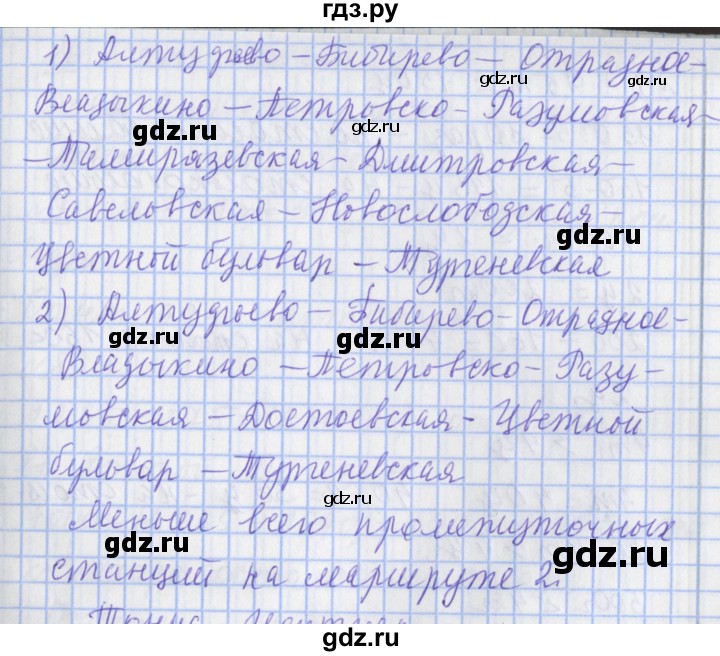 гдз.ру
1) Алтудьево – Бибирево – Отрадное –
gdz.ru gdz.ru
Владыкино – Петровско - Разумовская –
gdz.ru gdz.ru
– Тимирязевская – Дмитровская –
gdz.ru
Савеловская – Новослободская –
gdz.ru
Цветный бульвар – Тургеневская
gdz.ru
2) Алтудьево – Бибирево – Отрадное –
gdz.ru gdz.ru
Владыкино – Петровско - Разу –
gdz.ru
мовская – Достоевская – Цветной
gdz.ru
бульвар – Тургеневская
gdz.ru
Меньше всего промежуточных
gdz.ru gdz.ru
станций на маршруте 2.
gdz.ru